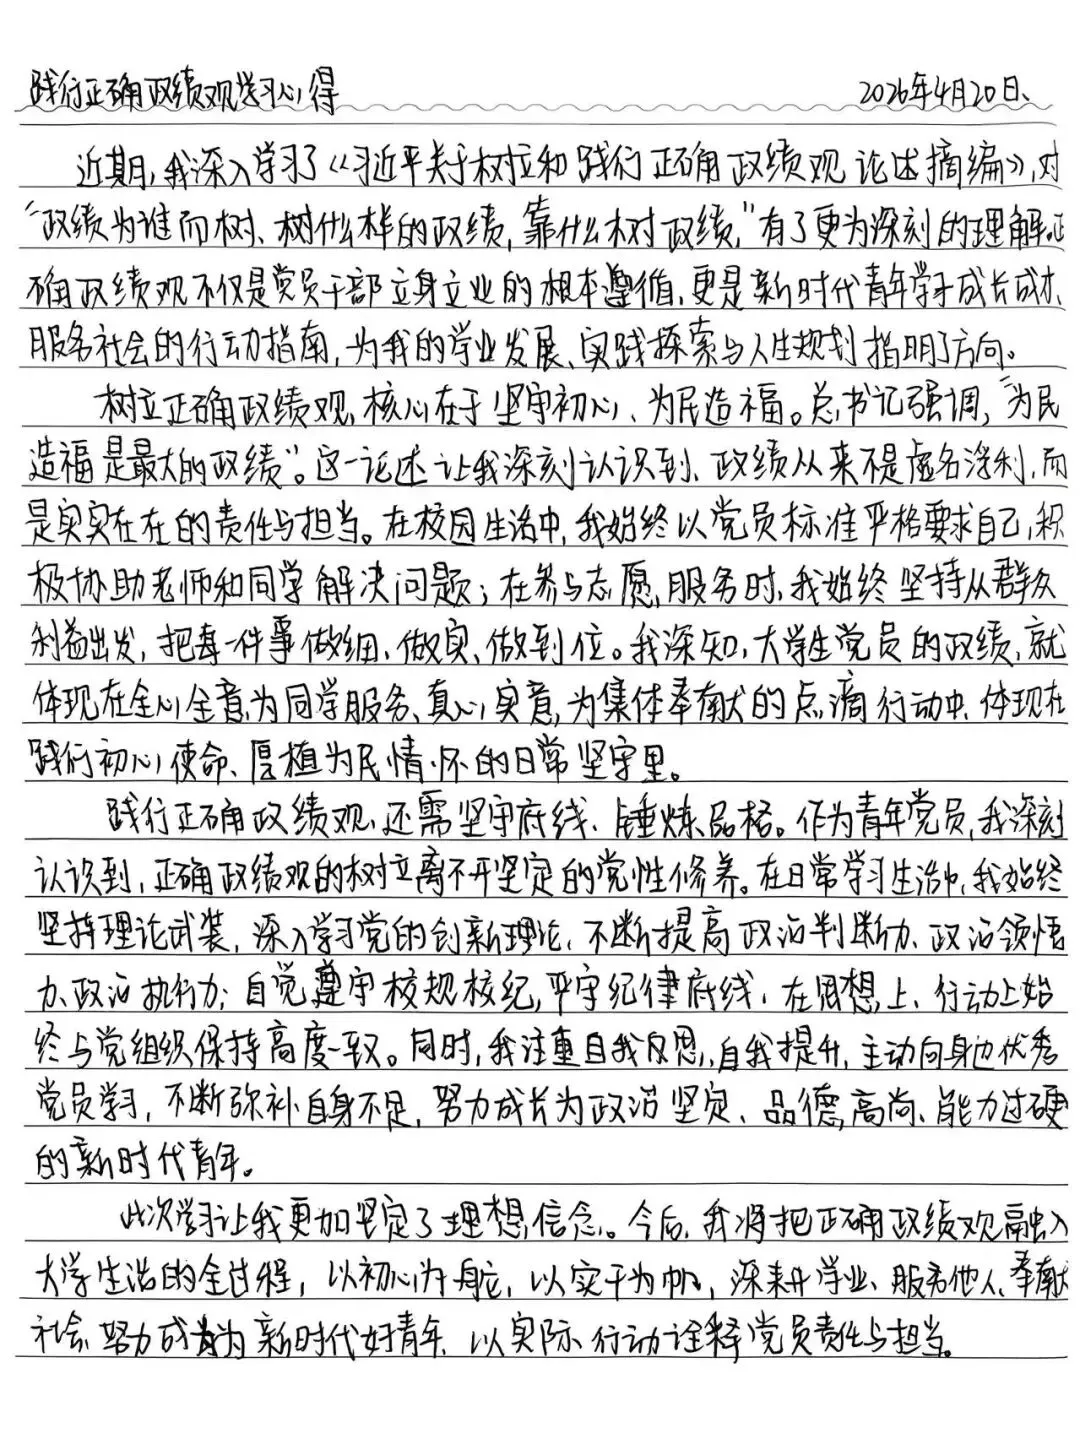 践行正确政绩观学习心得 2026年4月20日、
近期,我深入学习了《习近平关于树立和践行正确政绩观论述摘编》,对
“政绩为谁而树、树什么样的政绩,靠什么树政绩,”有了更为深刻的理解。正
确政绩观不仅是党员干部立身立业的根本遵循,更是新时代青年学子成长成才、
服务社会的行动指南,为我的学业发展、实践探索与人生规划指明了方向。
树立正确政绩观,核心在于坚守初心、为民造福。总书记强调,“为民
造福是最大的政绩”。这一论述让我深刻认识到、政绩从来不是虚名浮利,而
是实实在在的责任与担当。在校园生活中,我始终以党员标准严格要求自己,积
极协助老师和同学解决问题;在参与志愿服务时,我始终坚持从群众
利益出发,把每一件事做细、做实、做到位。我深知,大学生党员的政绩,就
体现在全心全意为同学服务、真心实意为集体奉献的点滴行动中,体现在
践行初心使命、厚植为民情怀的日常坚守里。
践行正确政绩观,还需坚守底线、锤炼品格。作为青年党员,我深刻
认识到,正确政绩观的树立离不开坚定的党性修养。在日常学习生活中,我始终
坚持理论武装,深入学习党的创新理论,不断提高政治判断力、政治领悟
力、政治执行力;自觉遵守校规校纪,严守纪律底线,在思想上、行动上始
终与党组织保持高度一致。同时,我注重自我反思,自我提升,主动向身边优秀
党员学习,不断弥补自身不足,努力成长为政治坚定、品德高尚、能力过硬
的新时代青年。
此次学习让我更加坚定了理想信念。今后,我将把正确政绩观融入
大学生活的全过程,以初心为舵,以实干为帆,深耕学业、服务他人、奉献
社会,努力成为新时代好青年,以实际行动诠释党员责任与担当。